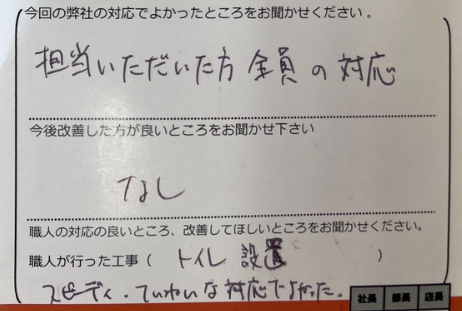 今回の弊社の対応でよかったところをお聞かせください。
担当いただいた方 全員の対応
今後改善した方が良いところをお聞かせ下さい
なし
職人の対応の良いところ、改善してほしいところをお聞かせください。
職人が行った工事（ トイレ 設置 ）
スピーディ、ていねいな対応でよかった。
社長 部長 店長